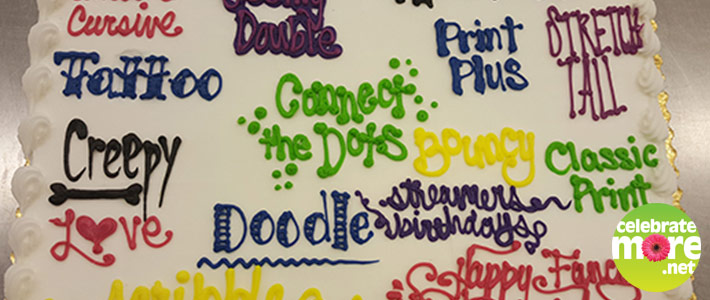 Cursive
Double
Tattoo
Print
Plus
STRETCH
TALL
Connect
the Dots
Creepy
Bouncy
Classic
Print
Love
Doodle
streamers
birthdays
scribble
Happy Fancy
celebrate
more
.net